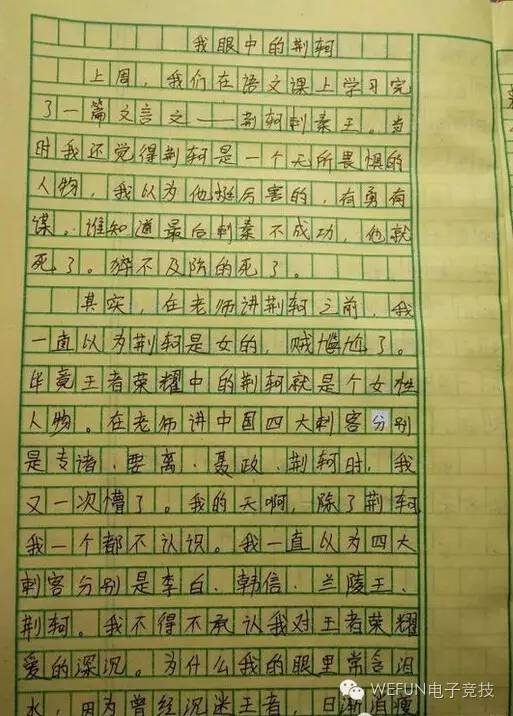 我眼中的荆轲
上周，我们在语文课上学习完
了一篇文言文——荆轲刺秦王。当
时我还觉得荆轲是一个无所畏惧的
人物，我以为他挺厉害的，有勇有
谋。谁知道最后刺秦不成功，他就
死了。猝不及防的死了。
其实，在老师讲荆轲之前，我
一直以为荆轲是女的，贼尴尬了。
毕竟王者荣耀中的荆轲就是个女性
人物。在老师讲中国四大刺客分别
是专诸、要离、聂政、荆轲时，我
又一次懵了。我的天啊，除了荆轲
我一个都不认识。我一直以为四大
刺客分别是李白、韩信、兰陵王、
荆轲。我不得不承认我对王者荣耀
爱的深沉。为什么我的眼里常含泪
水，因为曾经沉迷王者，日渐消瘦
WEFUN电子竞技